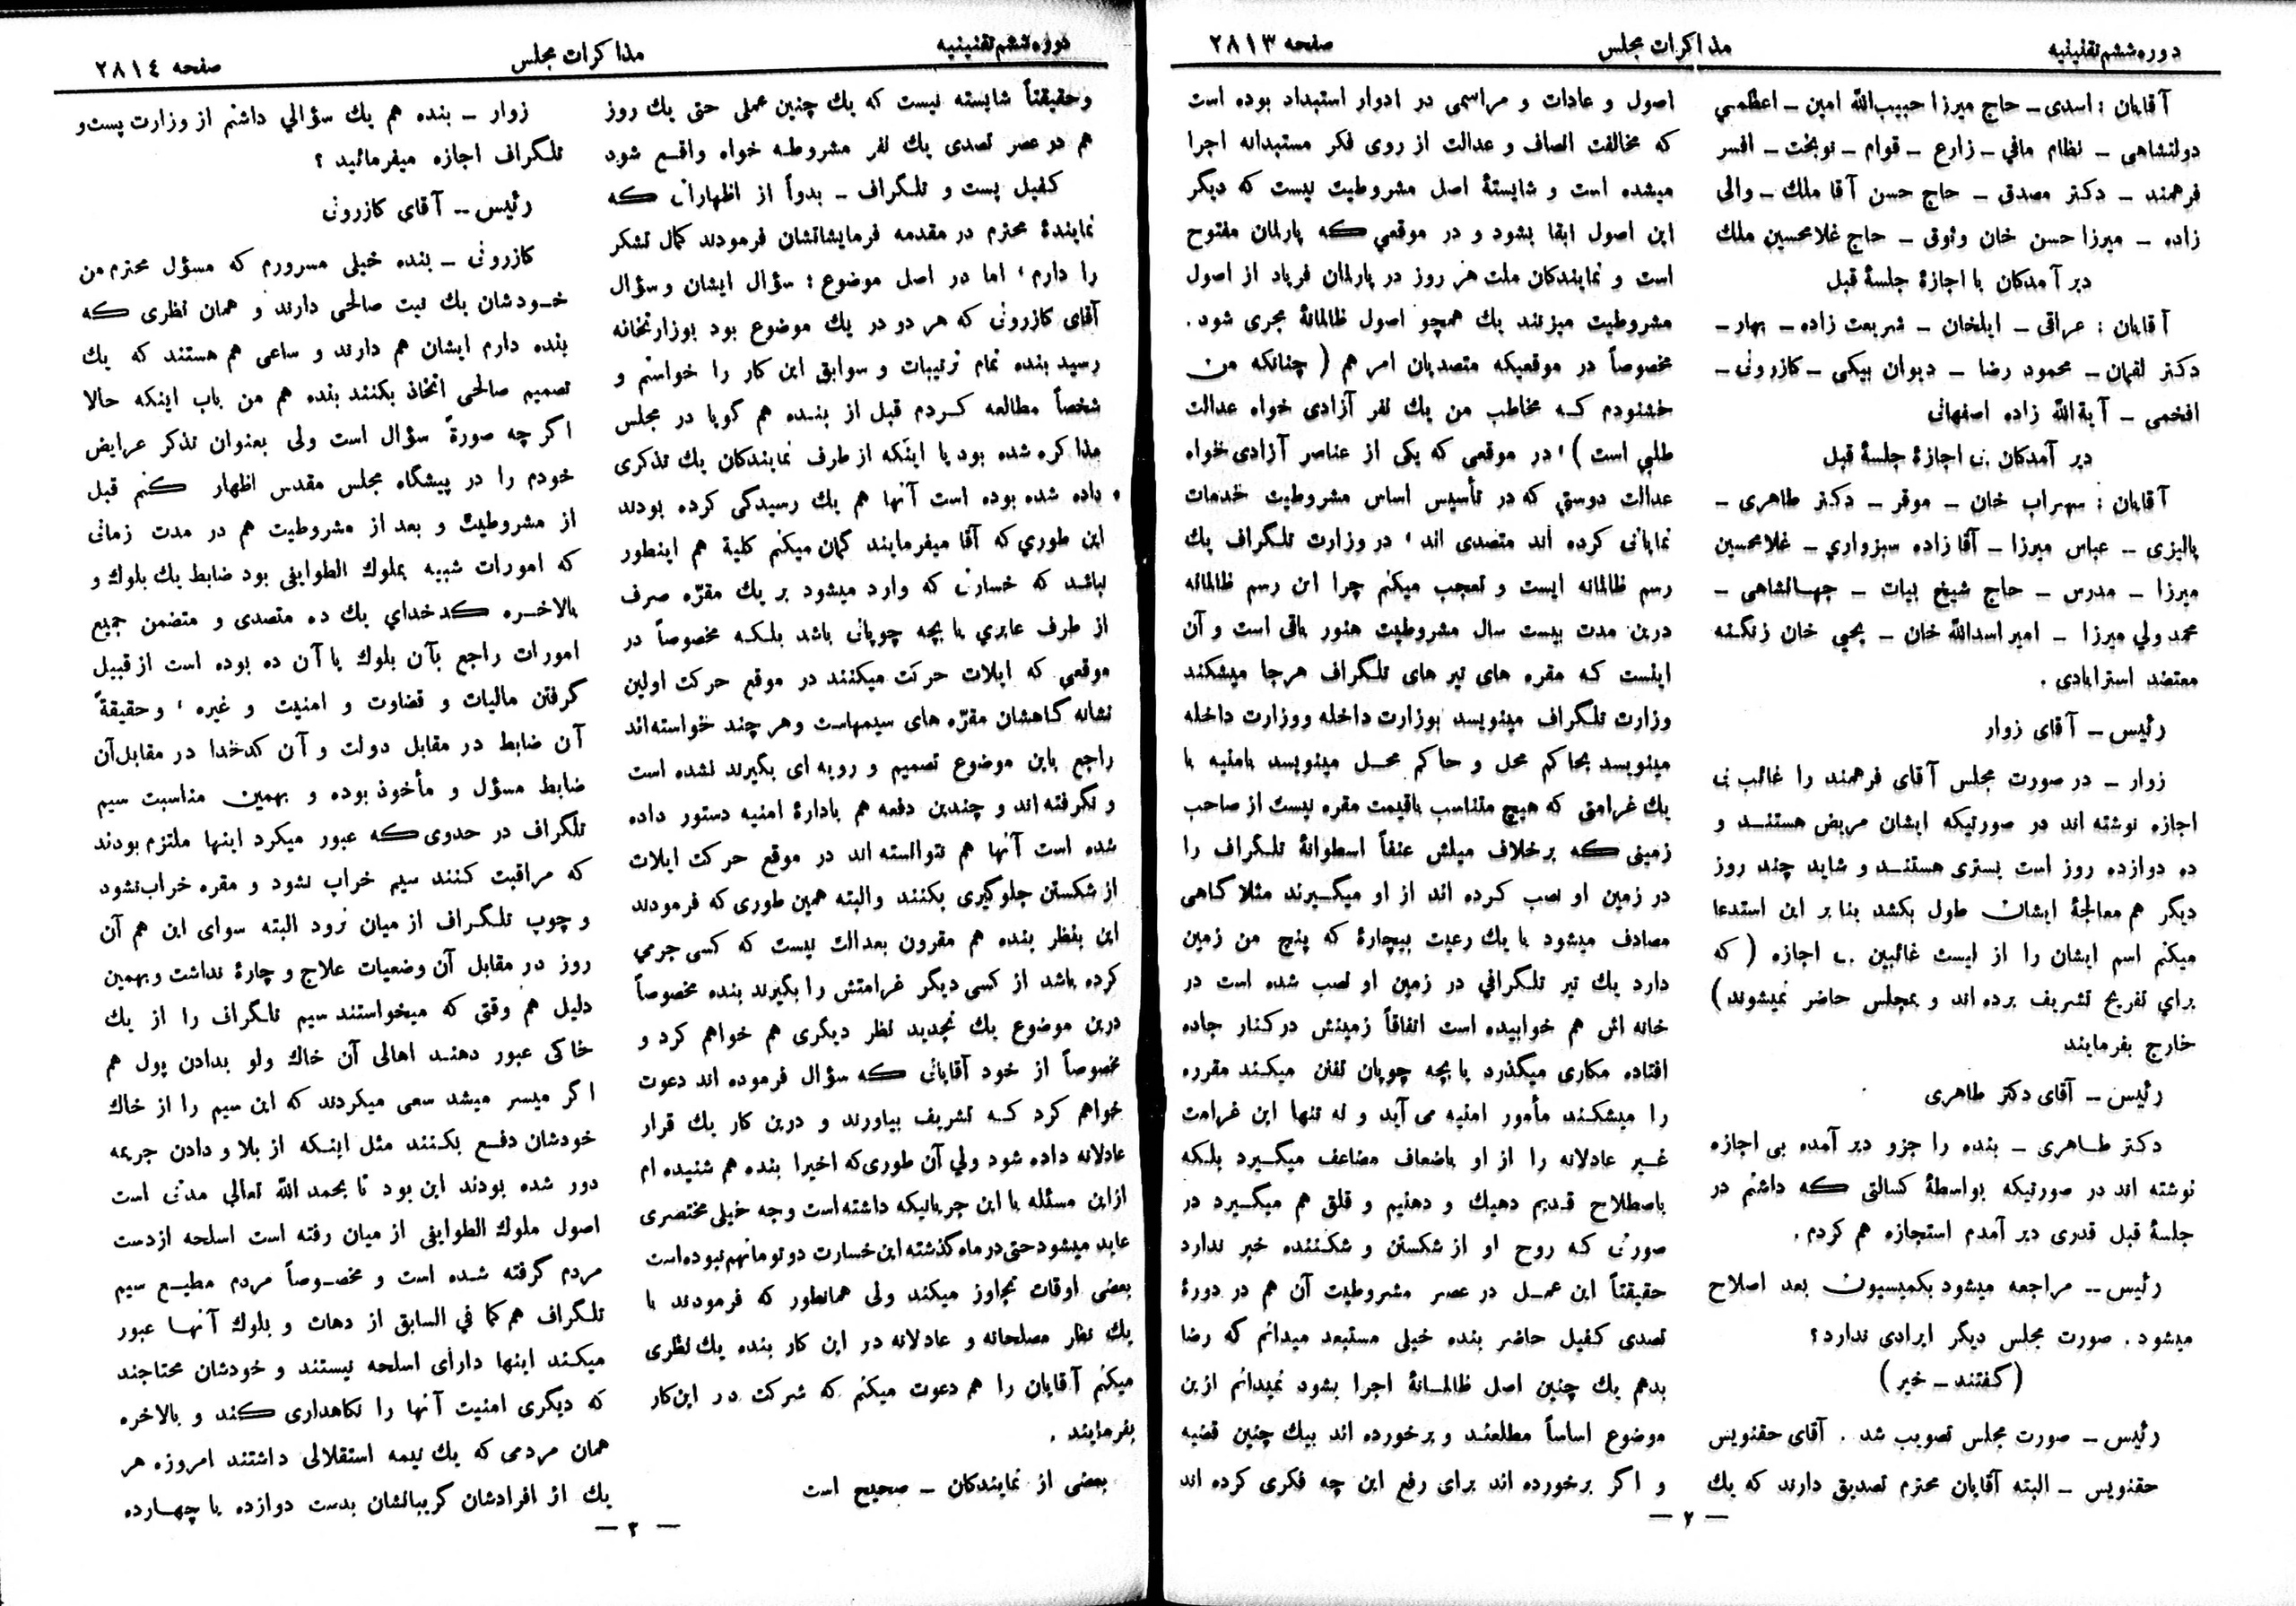 دوره ششم تقنینیه
مذاکرات مجلس
صفحه ۲۸۱۳
آقایان : اسدی ــ حاج میرزا حبیب‌الله امین ــ اعظمی
دولتشاهی ــ نظام مافی ــ زارع ــ قوام ــ نوبخت ــ افسر
فرهمند ــ دکتر مصدق ــ حاج حسن آقا ملك ــ والی
زاده ــ میرزا حسن خان وثوق ــ حاج غلامحسین ملك
دیر آمدکان با اجازۀ جلسۀ قبل
آقایان : عراقی ــ ایلخان ــ شریعت زاده ــ بهار ــ
دکتر لقمان ــ محمود رضا ــ دیوان بیکی ــ کازرونی ــ
افخمی ــ آیةالله زاده اصفهانی
دیر آمدکان بی اجازۀ جلسۀ قبل
آقایان : سهراب خان ــ موقر ــ دکتر طاهری ــ
پالیزی ــ عباس میرزا ــ آقا زاده سبزواري ــ غلامحسین
میرزا ــ مدرس ــ حاج شیخ بیات ــ جهانشاهی ــ
محمد ولي میرزا ــ امیر اسدالله خان ــ یحیی خان زنگنه
معتضد استرابادی .
رئیس ــ آقای زوار
زوار ــ در صورت مجلس آقای فرهمند را غائب بی
اجازه نوشته اند در صورتیکه ایشان مریض هستند و
ده دوازده روز است بستری هستند و شاید چند روز
دیگر هم معالجۀ ایشان طول بکشد بنا بر این استدعا
میکنم اسم ایشان را از لیست غائبین بی اجازه ( که
براي تفریح تشریف برده اند و بمجلس حاضر نمیشوند )
خارج بفرمایند
رئیس ــ آقای دکتر طاهری
دکتر طاهری ــ بنده را جزو دیر آمده بی اجازه
نوشته اند در صورتیکه بواسطۀ کسالتی که داشتم در
جلسۀ قبل قدری دیر آمدم استجازه هم کردم .
رئیس ــ مراجعه میشود بکمیسیون بعد اصلاح
میشود . صورت مجلس دیگر ایرادی ندارد ؟
( گفتند ــ خیر )
رئیس ــ صورت مجلس تصویب شد . آقای حقنویس
حقنویس ــ البته آقایان محترم تصدیق دارند که یك
اصول و عادات و مراسمی در ادوار استبداد بوده است
که مخالفت انصاف و عدالت از روی فکر مستبدانه اجرا
میشده است و شایستۀ اصل مشروطیت نیست که دیگر
این اصول ابقا بشود و در موقعي که پارلمان مفتوح
است و نمایندکان ملت هر روز در پارلمان فریاد از اصول
مشروطیت میزنند یك همچو اصول ظالمانۀ مجری شود .
مخصوصاً در موقعیکه متصدیان امر هم ( چنانکه من
خشنودم که مخاطب من یك نفر آزادی خواه عدالت
طلبي است ) ، در موقعی که یکی از عناصر آزادی خواه
عدالت دوستي که در تأسیس اساس مشروطیت خدمات
نمایانی کرده اند متصدی اند ، در وزارت تلگراف یك
رسم ظالمانه ایست و تعجب میکنم چرا این رسم ظالمانه
درین مدت بیست سال مشروطیت هنوز باقی است و آن
اینست که مقره های تیر های تلگراف هرجا میشکند
وزارت تلگراف مینویسد بوزارت داخله ووزارت داخله
مینویسد بحاکم محل و حاکم محل مینویسد بامنیه با
یك غرامتی که هیچ متناسب باقیمت مقره نیست از صاحب
زمینی که برخلاف میلش عنفاً اسطوانۀ تلگراف را
در زمین او نصب کرده اند از او میگیرند مثلا گاهی
مصادف میشود با یك رعیت بیچارۀ که پنج من زمین
دارد یك تیر تلگرافي در زمین او نصب شده است در
خانه اش هم خوابیده است اتفاقاً زمینش درکنار جاده
افتاده مکاری میگذرد یا بچه چوپان تفنن میکند مقرره
را میشکند مأمور امنیه می آید و نه تنها این غرامت
غیر عادلانه را از او باضعاف مضاعف میگیرد بلکه
باصطلاح قدیم دهیك و دهنیم و قلق هم میگیرد در
صورتی که روح او از شکستن و شکننده خبر ندارد
حقیقتاً این عمل در عصر مشروطیت آن هم در دورۀ
تصدی کفیل حاضر بنده خیلی مستبعد میدانم که رضا
بدهم یك چنین اصل ظالمانۀ اجرا بشود نمیدانم ازین
موضوع اساساً مطلعند و برخورده اند بیك چنین قضیه
و اگر برخورده اند برای رفع این چه فکری کرده اند
— ۲ —
دوره ششم تقنینیه
مذاکرات مجلس
صفحه ۲۸۱٤
وحقیقتاً شایسته نیست که یك چنین عملی حتی یك روز
هم در عصر تصدی یك نفر مشروطه خواه واقع شود
کفیل پست و تلگراف ــ بدواً از اظهاراتی که
نمایندۀ محترم در مقدمه فرمایشاتشان فرمودند کمال تشکر
را دارم ، اما در اصل موضوع : سؤال ایشان و سؤال
آقای کازرونی که هر دو در یك موضوع بود بوزارتخانه
رسید بنده تمام ترتیبات و سوابق این کار را خواستم و
شخصاً مطالعه کردم قبل از بنده هم گویا در مجلس
مذاکره شده بود یا اینکه از طرف نمایندکان یك تذکری
داده شده بوده است آنها هم یك رسیدگی کرده بودند
این طوري که آقا میفرمایند گمان میکنم کلیة هم اینطور
نباشد که خسارتی که وارد میشود بر یك مقرّه صرف
از طرف عابري یا بچه چوپانی باشد بلکه مخصوصاً در
موقعي که ایلات حرکت میکنند در موقع حرکت اولین
نشانه گاهشان مقرّه های سیمهاست وهر چند خواسته‌اند
راجع باین موضوع تصمیم و رویه ای بگیرند نشده است
و نگرفته اند و چندین دفعه هم بادارۀ امنیه دستور داده
شده است آنها هم نتوانسته اند در موقع حرکت ایلات
از شکستن جلوگیری بکنند والبته همین طوری که فرمودند
این بنظر بنده هم مقرون بعدالت نیست که کسی جرمی
کرده باشد از کسی دیگر غرامتش را بگیرند بنده مخصوصاً
درین موضوع یك تجدید نظر دیگری هم خواهم کرد و
مخصوصاً از خود آقایانی که سؤال فرموده اند دعوت
خواهم کرد که تشریف بیاورند و درین کار یك قرار
عادلانه داده شود ولي آن طوری‌که اخیرا بنده هم شنیده ام
ازاین مسئله با این جریانیکه داشته‌است وجه خیلی مختصری
عاید میشود حتی در ماه گذشته این خسارت دو تومانهم نبوده‌است
بعضی اوقات تجاوز میکند ولی همانطور که فرمودند با
یك نظر مصلحانه و عادلانه در این کار بنده یك نظری
میکنم آقایان را هم دعوت میکنم که شرکت در این‌کار
بفرمایند .
بعضی از نمایندکان ــ صحیح است
زوار ــ بنده هم یك سؤالي داشتم از وزارت پست و
تلگراف اجازه میفرمائید ؟
رئیس ــ آقای کازرونی
کازرونی ــ بنده خیلی مسرورم که مسؤل محترم من
خودشان یك نیت صالحی دارند و همان نظری که
بنده دارم ایشان هم دارند و ساعی هم هستند که یك
تصمیم صالحی اتخاذ بکنند بنده هم من باب اینکه حالا
اگر چه صورةً سؤال است ولی بعنوان تذکر عرایض
خودم را در پیشگاه مجلس مقدس اظهار کنم قبل
از مشروطیت و بعد از مشروطیت هم در مدت زمانی
که امورات شبیه بملوك الطوایفی بود ضابط یك بلوك و
بالاخره کدخداي یك ده متصدی و متضمن جمیع
امورات راجع بآن بلوك یا آن ده بوده است از قبیل
گرفتن مالیات و قضاوت و امنیت و غیره ، وحقیقةً
آن ضابط در مقابل دولت و آن کدخدا در مقابل‌آن
ضابط مسؤل و مأخوذ بوده و بهمین مناسبت سیم
تلگراف در حدوی که عبور میکرد اینها ملتزم بودند
که مراقبت کنند سیم خراب نشود و مقره خراب‌نشود
و چوب تلگراف از میان نرود البته سوای این هم آن
روز در مقابل آن وضعیات علاج و چارۀ نداشت و بهمین
دلیل هم وقتی که میخواستند سیم تلگراف را از یك
خاکی عبور دهند اهالی آن خاك ولو بدادن پول هم
اگر میسر میشد سعی میکردند که این سیم را از خاك
خودشان دفع بکنند مثل اینکه از بلا و دادن جریمه
دور شده بودند این بود تا بحمد الله تعالي مدتی است
اصول ملوك الطوایفی از میان رفته است اسلحه ازدست
مردم گرفته شده است و مخصوصاً مردم مطیع سیم
تلگراف هم کما في السابق از دهات و بلوك آنها عبور
میکند اینها دارای اسلحه نیستند و خودشان محتاجند
که دیگری امنیت آنها را نگاهداری کند و بالاخره
همان مردمی که یك نیمه استقلالی داشتند امروزه هر
یك از افرادشان گریبانشان بدست دوازده یا چهارده
— ۳ —